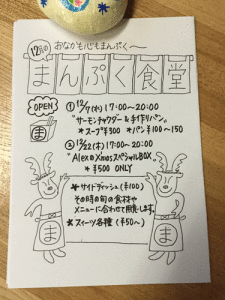 12月の おなかも心もまんぷく〜
まんぷく食堂
OPEN
ま
① 12/7(水) 17:00〜20:00
"サーモンチャウダー & 手作りパン"
*スープ¥300 *パン¥100〜150
② 12/22(木) 17:00〜20:00
"AlexのX'masスペシャルBOX"
*¥500 ONLY
*サイドディッシュ(¥100)
その時の旬の食材や
メニューに合わせて用意します。
*スイーツ各種(¥50〜)
ま
ま